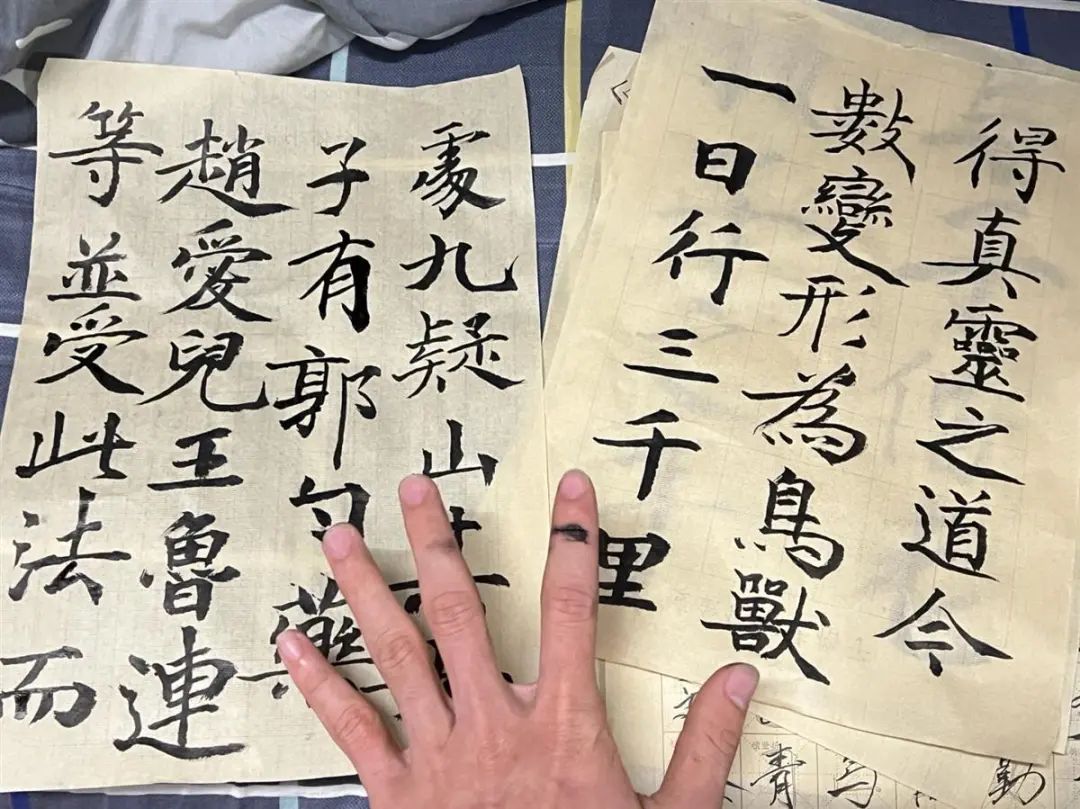 得真靈之道今
數變形為鳥獸
一日行三千里
處九疑山
子有郭勺藥
趙愛兒王魯連
等並受此法而
勤
青